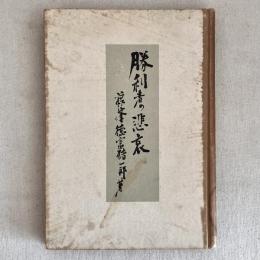 勝利者の悲哀
徳富猪一郎著